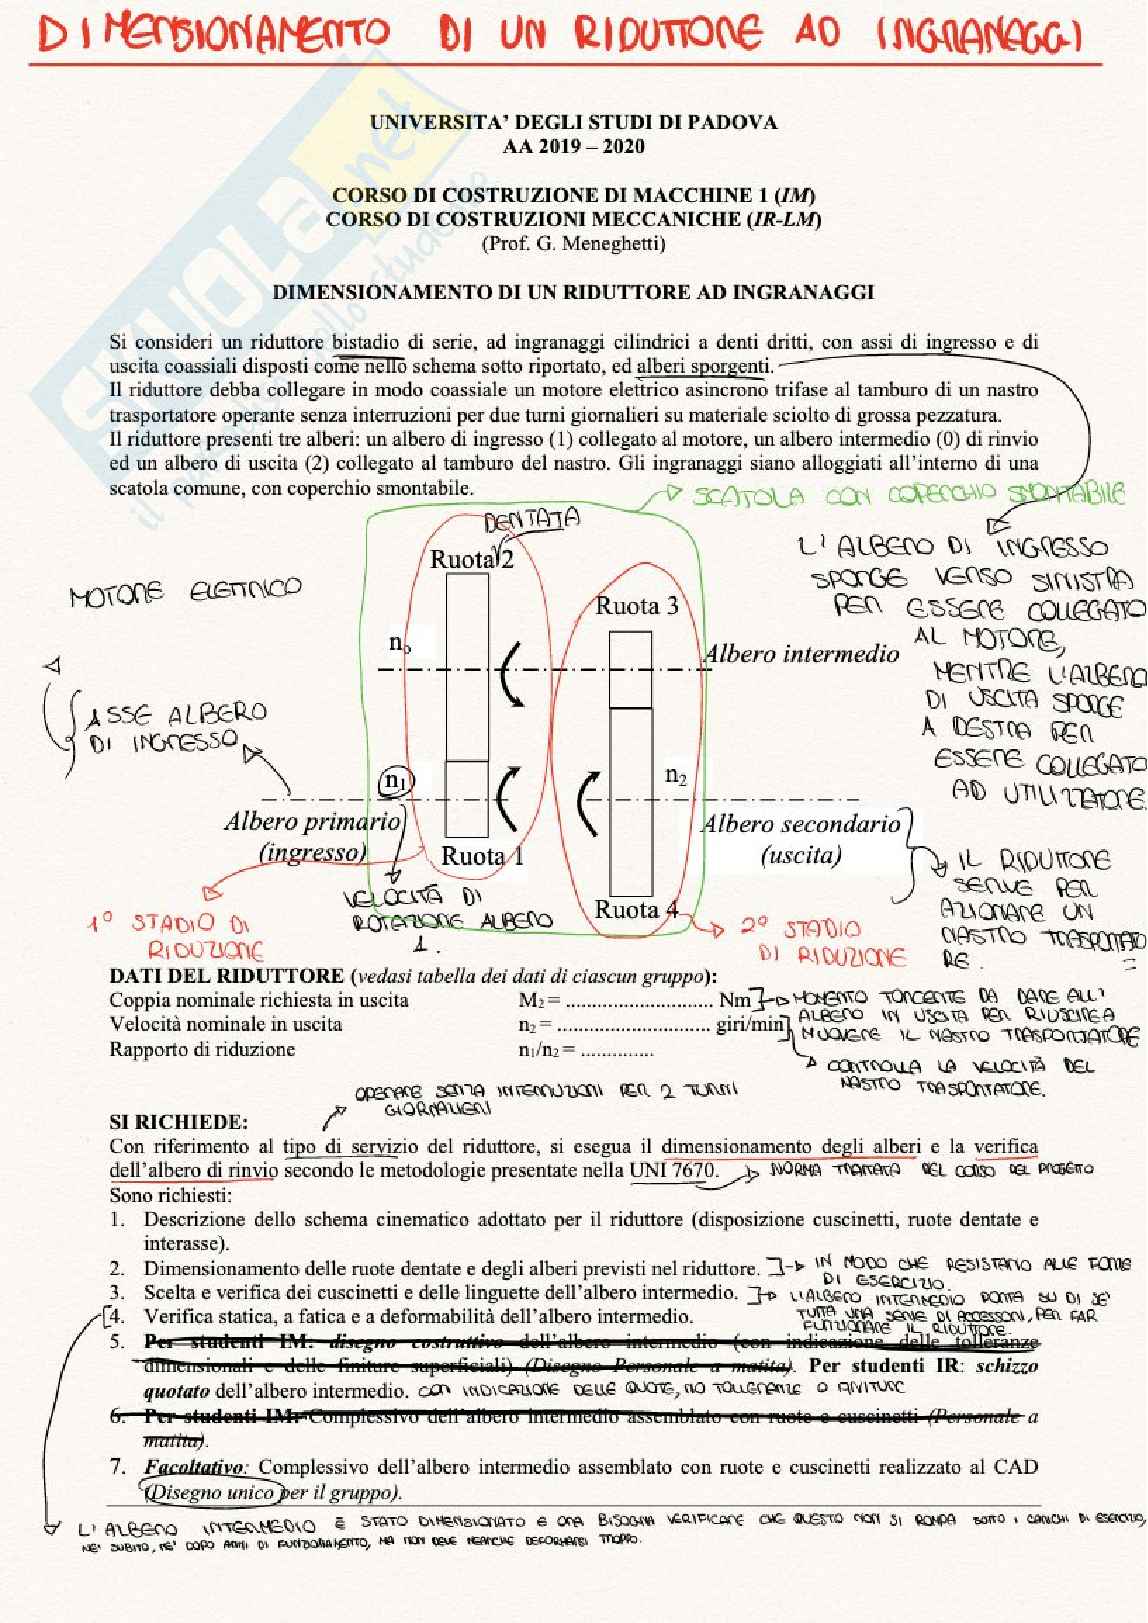 DIMENSIONAMENTO DI UN RIDUTTORE AD INGRANAGGI
UNIVERSITA’ DEGLI STUDI DI PADOVA
AA 2019 – 2020
CORSO DI COSTRUZIONE DI MACCHINE 1 (IM)
CORSO DI COSTRUZIONI MECCANICHE (IR-LM)
(Prof. G. Meneghetti)
DIMENSIONAMENTO DI UN RIDUTTORE AD INGRANAGGI
Si consideri un riduttore bistadio di serie, ad ingranaggi cilindrici a denti dritti, con assi di ingresso e di
uscita coassiali disposti come nello schema sotto riportato, ed alberi sporgenti.
Il riduttore debba collegare in modo coassiale un motore elettrico asincrono trifase al tamburo di un nastro
trasportatore operante senza interruzioni per due turni giornalieri su materiale sciolto di grossa pezzatura.
Il riduttore presenti tre alberi: un albero di ingresso (1) collegato al motore, un albero intermedio (0) di rinvio
ed un albero di uscita (2) collegato al tamburo del nastro. Gli ingranaggi siano alloggiati all’interno di una
scatola comune, con coperchio smontabile.
SKUOLA.net
SCATOLA CON COPERCHIO SMONTABILE
DENTATA
Ruota 2
MOTORE ELETTRICO
Ruota 3
Albero intermedio
L'ALBERO DI INGRESSO
SPORGE VERSO SINISTRA
PER ESSERE COLLEGATO
AL MOTORE,
MENTRE L'ALBERO
DI USCITA SPORGE
A DESTRA PER
ESSERE COLLEGATO
AD UTILIZZATORE.
ASSE ALBERO
DI INGRESSO
n₁
n₂
Albero primario
(ingresso)
Ruota 1
Albero secondario
(uscita)
Ruota 4
IL RIDUTTORE
SERVE PER
AZIONARE UN
NASTRO TRASPORTATO
RE.
VELOCITÀ DI
ROTAZIONE ALBERO
1.
1° STADIO DI
RIDUZIONE
2° STADIO
DI RIDUZIONE
DATI DEL RIDUTTORE (vedasi tabella dei dati di ciascun gruppo):
Coppia nominale richiesta in uscita M₂ = ............................ Nm
Velocità nominale in uscita n₂ = ............................. giri/min
Rapporto di riduzione n₁/n₂ = ..............
MOMENTO TORCENTE DA DARE ALL'
ALBERO IN USCITA PER RIUSCIRE A
MUOVERE IL NASTRO TRASPORTATORE
CONTROLLA LA VELOCITÀ DEL
NASTRO TRASPORTATORE.
OPERARE SENZA INTERRUZIONI PER 2 TURNI
GIORNALIERI
SI RICHIEDE:
Con riferimento al tipo di servizio del riduttore, si esegua il dimensionamento degli alberi e la verifica
dell’albero di rinvio secondo le metodologie presentate nella UNI 7670.
NORMA TRATTATA DEL CORSO DEL PROGETTO
Sono richiesti:
1. Descrizione dello schema cinematico adottato per il riduttore (disposizione cuscinetti, ruote dentate e
interasse).
2. Dimensionamento delle ruote dentate e degli alberi previsti nel riduttore.
IN MODO CHE RESISTANO ALLE FORZE
DI ESERCIZIO.
3. Scelta e verifica dei cuscinetti e delle linguette dell’albero intermedio.
L'ALBERO INTERMEDIO PORTA SU DI SE'
TUTTA UNA SERIE DI ACCESSORI, PER FAR
FUNZIONARE IL RIDUTTORE.
4. Verifica statica, a fatica e a deformabilità dell’albero intermedio.
5. Per studenti IM: disegno costruttivo dell’albero intermedio (con indicazione delle tolleranze
dimensionali e delle finiture superficiali) (Disegno Personale a matita). Per studenti IR: schizzo
quotato dell’albero intermedio. CON INDICAZIONE DELLE QUOTE, NO TOLLERANZE O FINITURE
6. Per studenti IM: Complessivo dell’albero intermedio assemblato con ruote e cuscinetti (Personale a
matita).
7. Facoltativo: Complessivo dell’albero intermedio assemblato con ruote e cuscinetti realizzato al CAD
(Disegno unico per il gruppo).
L'ALBERO INTERMEDIO È STATO DIMENSIONATO E ORA BISOGNA VERIFICARE CHE QUESTO NON SI ROMPA SOTTO I CARICHI DI ESERCIZIO,
NE' SUBITO, NE' DOPO ANNI DI FUNZIONAMENTO, MA NON DEVE NEANCHE DEFORMARSI TROPPO.